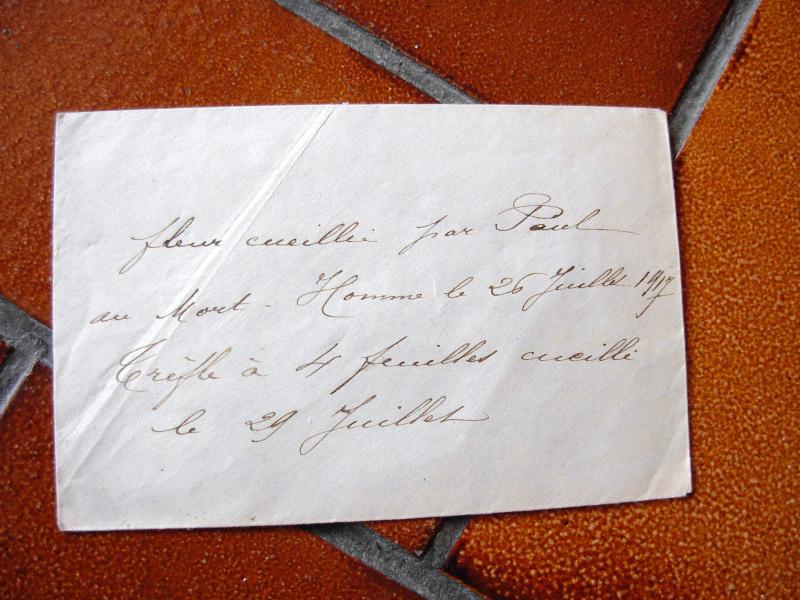 fleur cueillie par Paul
au Mort-Homme le 26 Juillet 1917
Trèfle à 4 feuilles cueilli
le 29 Juillet